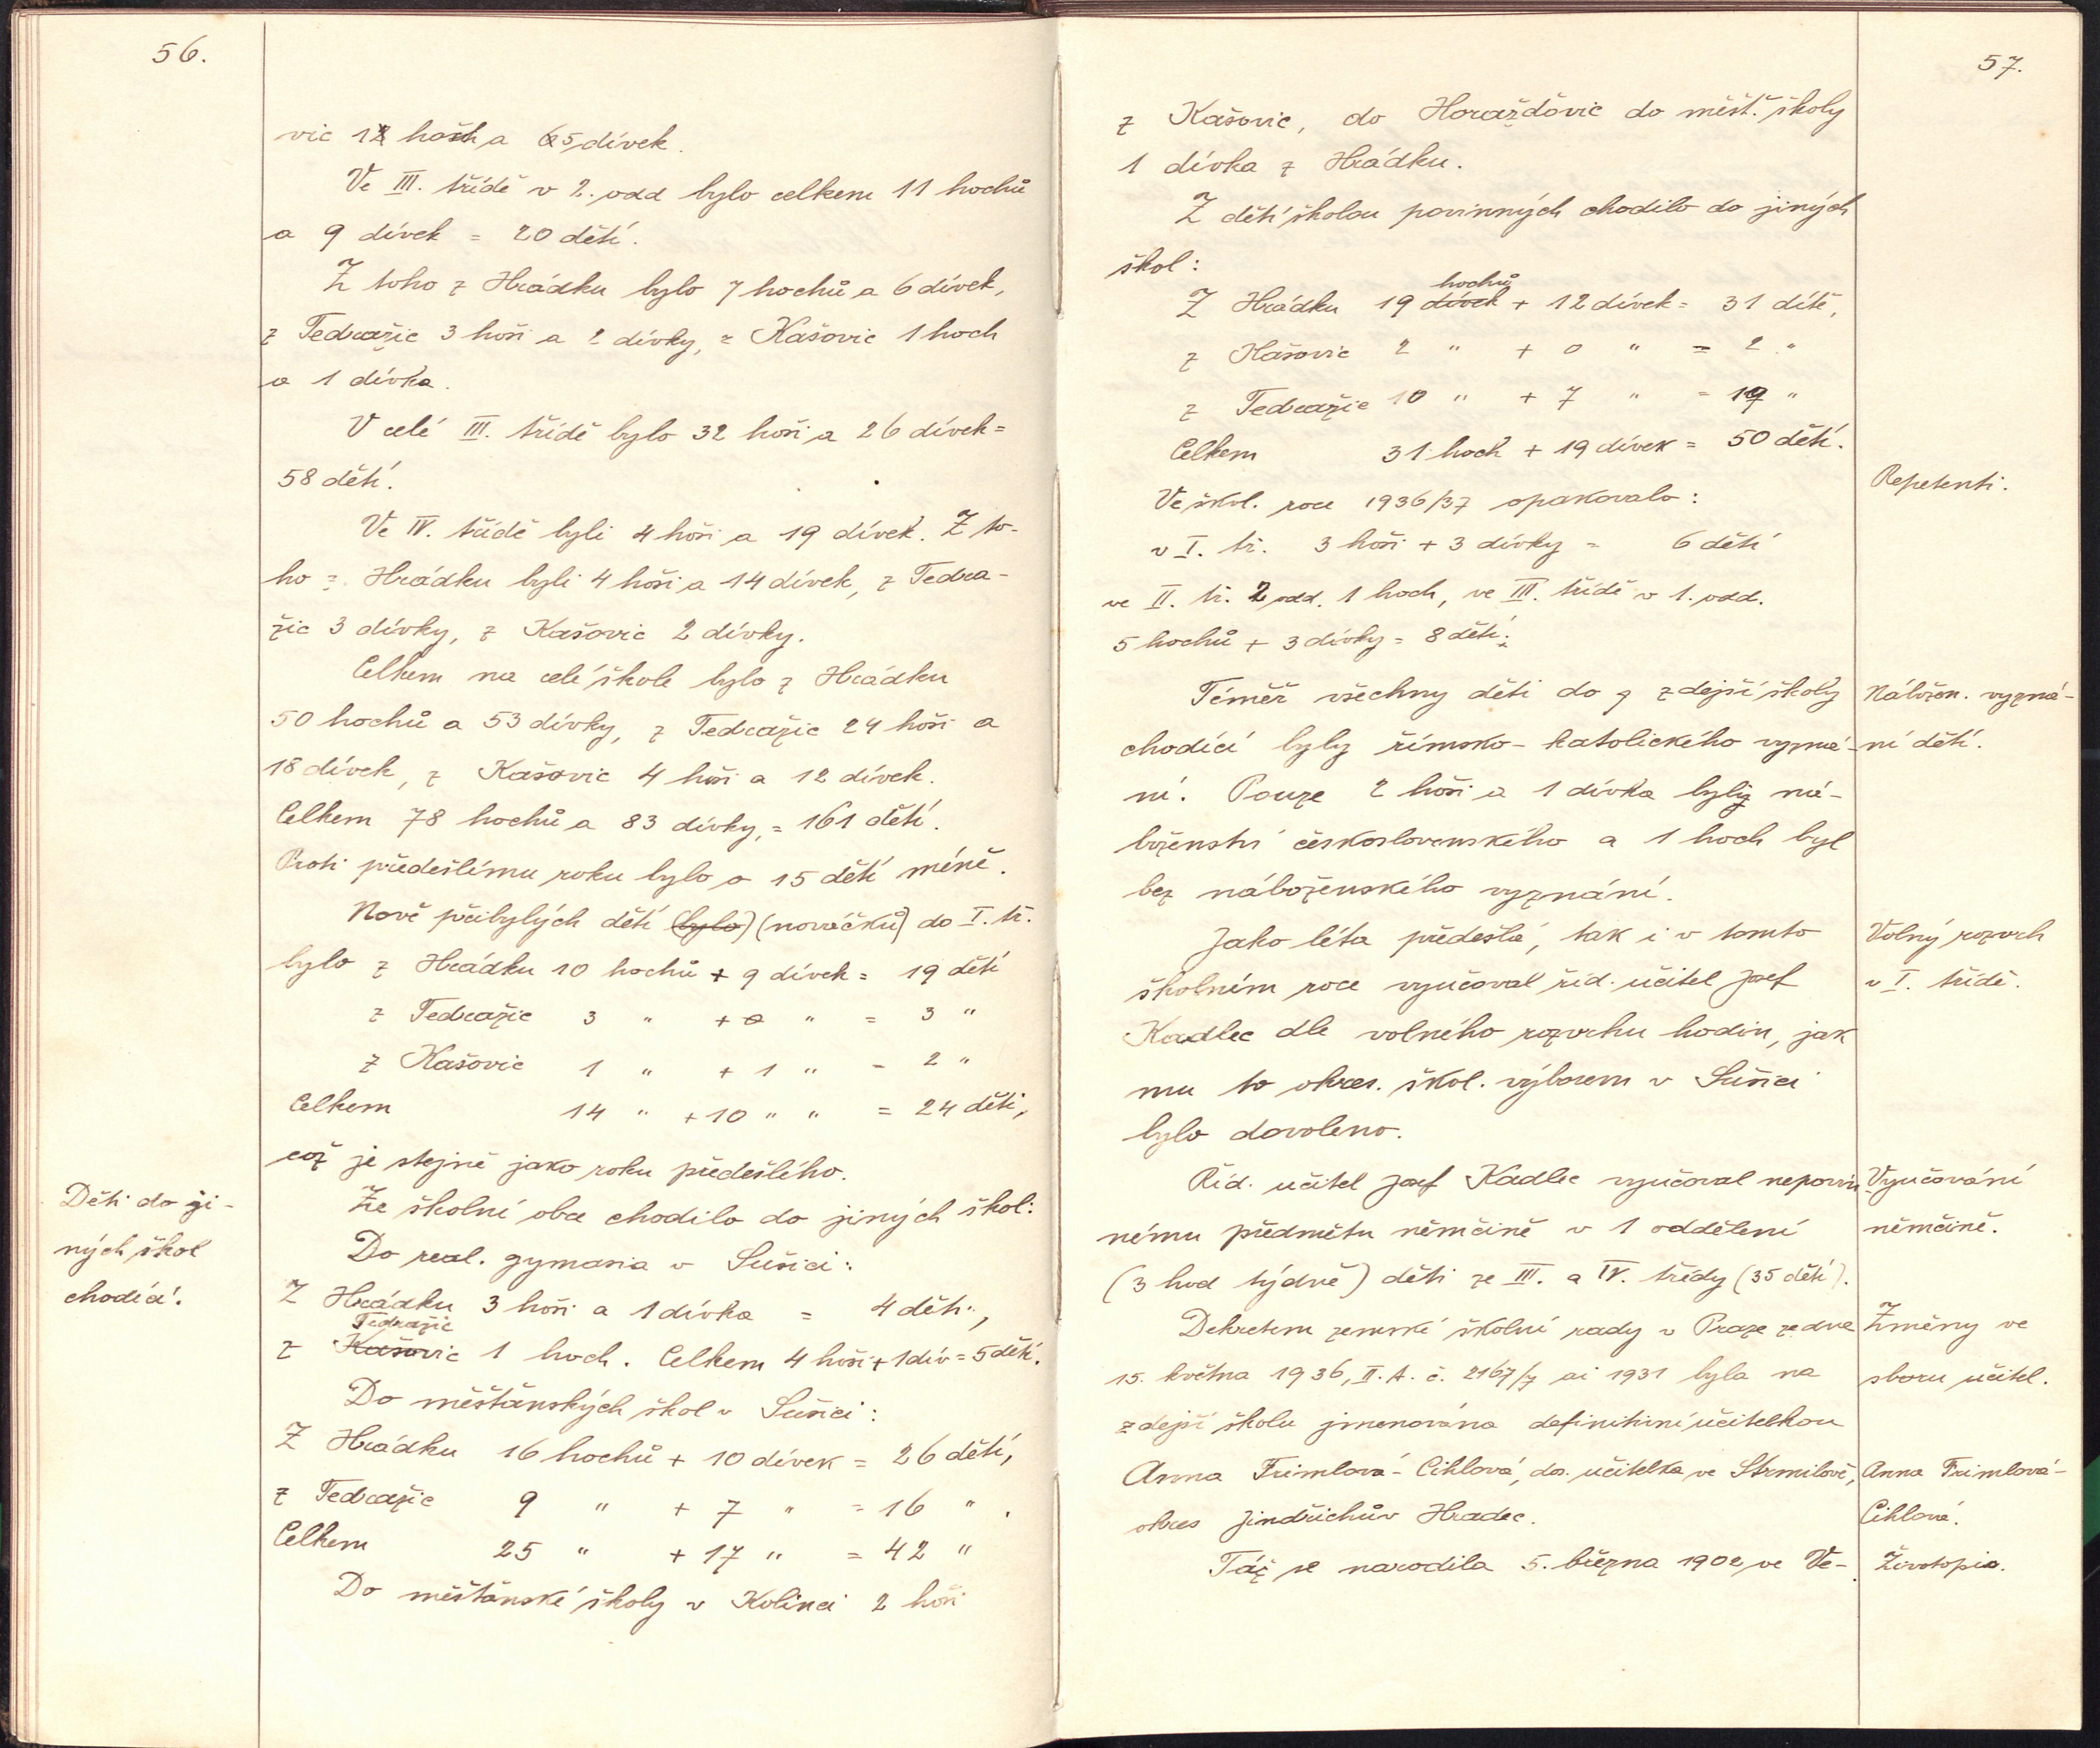 56.
vic 1 hoch a 5 dívek.
Ve III. třídě v 2. odd bylo celkem 11 hochů
a 9 dívek = 20 dětí.
Z toho z Hrádku bylo 7 hochů a 6 dívek,
z Tedražic 3 hoši a 2 dívky, z Kašovic 1 hoch
a 1 dívka.
V celé III. třídě bylo 32 hoši a 26 dívek =
58 dětí.
Ve IV. třídě byli 4 hoši a 19 dívek. Z to-
ho z Hrádku byli 4 hoši a 14 dívek, z Tedra-
žic 3 dívky, z Kašovic 2 dívky.
Celkem na celé škole bylo z Hrádku
50 hochů a 53 dívky, z Tedražic 24 hoši a
18 dívek, z Kašovic 4 hoši a 12 dívek.
Celkem 78 hochů a 83 dívky, = 161 dětí.
Proti předešlému roku bylo o 15 dětí méně.
Nově přibylých dětí (bylo) (nováčků) do I. tř.
bylo z Hrádku 10 hochů + 9 dívek = 19 dětí
z Tedražic 3 " + 0 " = 3 "
z Kašovic 1 " + 1 " = 2 "
Celkem 14 " + 10 " " = 24 děti,
což je stejně jako roku předešlého.
Děti do ji-
ných škol
chodící.
Ze školní obce chodilo do jiných škol:
Do real. gymasia v Sušici:
Z Hrádku 3 hoši a 1 dívka = 4 děti,
Tedražic
z Kašovic 1 hoch. Celkem 4 hoši + 1 dív = 5 dětí.
Do měšťanských škol v Sušici:
Z Hrádku 16 hochů + 10 dívek = 26 dětí,
z Tedražic 9 " + 7 " = 16 " .
Celkem 25 " + 17 " = 42 "
Do měšťanské školy v Kolinci 2 hoši
57.
z Kašovic, do Horažďovic do měšť. školy
1 dívka z Hrádku.
Z dětí školou povinných chodilo do jiných
škol:
hochů
Z Hrádku 19 dívek + 12 dívek = 31 dítě,
z Kašovic 2 " + 0 " = 2 "
z Tedražic 10 " + 7 " = 17 "
Celkem 31 hoch + 19 dívek = 50 dětí.
Repetenti.
Ve škol. roce 1936/37 opakovalo:
v I. tř. 3 hoši + 3 dívky = 6 dětí
ve II. tř. 2 odd. 1 hoch, ve III. třídě v 1. odd.
5 hochů + 3 dívky = 8 dětí.
Nábožen. vyzná-
ní dětí.
Téměř všechny děti do zdejší školy
chodící byly římsko-katolického vyzná-
ní. Pouze 2 hoši a 1 dívka byly ná-
boženství československého a 1 hoch byl
bez náboženského vyznání.
Volný rozvrh
v I. třídě.
Jako léta předešlá, tak i v tomto
školním roce vyučoval říd. učitel Josef
Kadlec dle volného rozvrhu hodin, jak
mu to okres. škol. výborem v Sušici
bylo dovoleno.
Vyučování
němčině.
Říd. učitel Josef Kadlec vyučoval nepovin
nému předmětu němčině v 1 oddělení
(3 hod týdně) děti ze III. a IV. třídy (35 dětí).
Změny ve
sboru učitel.
Dekretem zemské školní rady v Praze ze dne
15. května 1936, II. A. č. 2167/7 ai 1931 byla na
zdejší školu jmenována definitivní učitelkou
Anna Frimlová-Cihlová, do. učitelka ve Strmilově,
okres Jindřichův Hradec.
Anna Frimlová-
Cihlová.
Životopis.
Táž se narodila 5. března 1902 ve Ve-